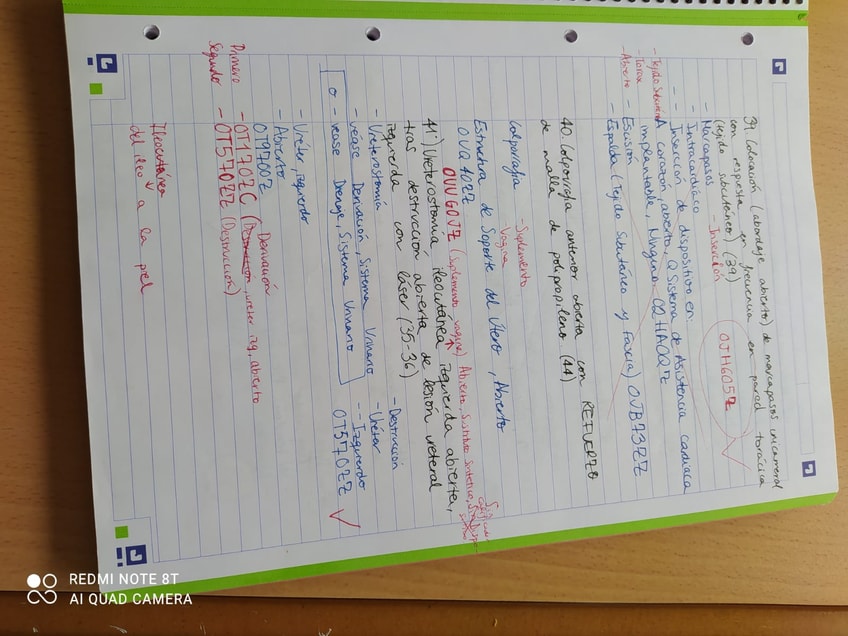 39. Colocación (abordaje abierto) de marcapasos unicameral
con respuesta en frecuencia en pared torácica
(tejido subcutáneo) (39)
- Inserción
0JH605Z
- Marcapasos
- Intracardíaco
- Inserción de dispositivo en:
A corazón, abierto, Q Sistema de Asistencia cardiaca
implantable, Ninguno 02HA0QZ
- Tórax
- Abierto
- Escisión
- Espalda (Tejido Subcutáneo y Fascia) 0JB73ZZ
40. Colporrafia anterior abierta con REFUERZO
de malla de polipropileno (44)
Colporrafia
- Suplemento
Vagina
Estructura de Soporte del Útero, Abierto
0UQ40ZZ
0UUG0JZ (Suplemento vagina) Abierto, Sustituto Sintético,
41) Ureterostomía ileocutánea izquierda abierta,
tras destrucción abierta de lesión ureteral
izquierda con láser (35-36)
- Ureterostomía
- véase Derivación, Sistema Urinario
o - véase Drenaje, Sistema Urinario
- Destrucción
- Uréter
-- Izquierdo
0T570ZZ
- Uréter, izquierdo
- Abierto
0T9700Z
Derivación
Primero - 0T170ZC (uréter izq, abierto
Segundo - 0T570ZZ (Destrucción)
Ileocutánea
del íleo a la piel
REDMI NOTE 8T
AI QUAD CAMERA